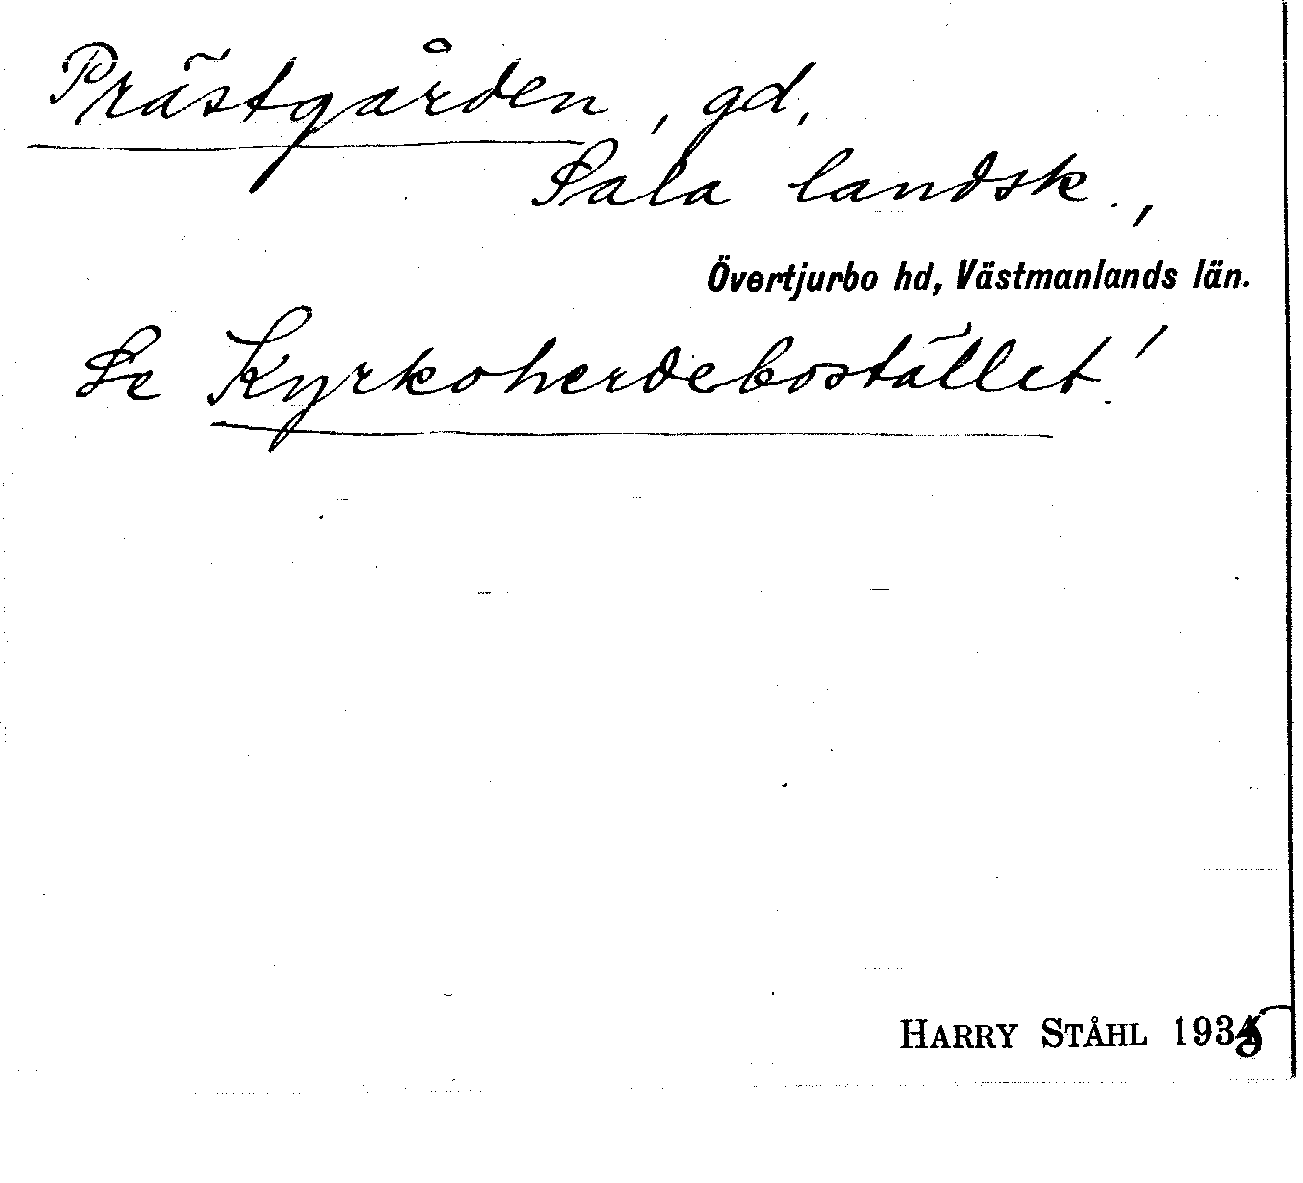 Prästgården, gd,
Sala landsk.,
Övertjurbo hd, Västmanlands län.
Se Kyrkoherdebostället!
HARRY STÅHL 1935